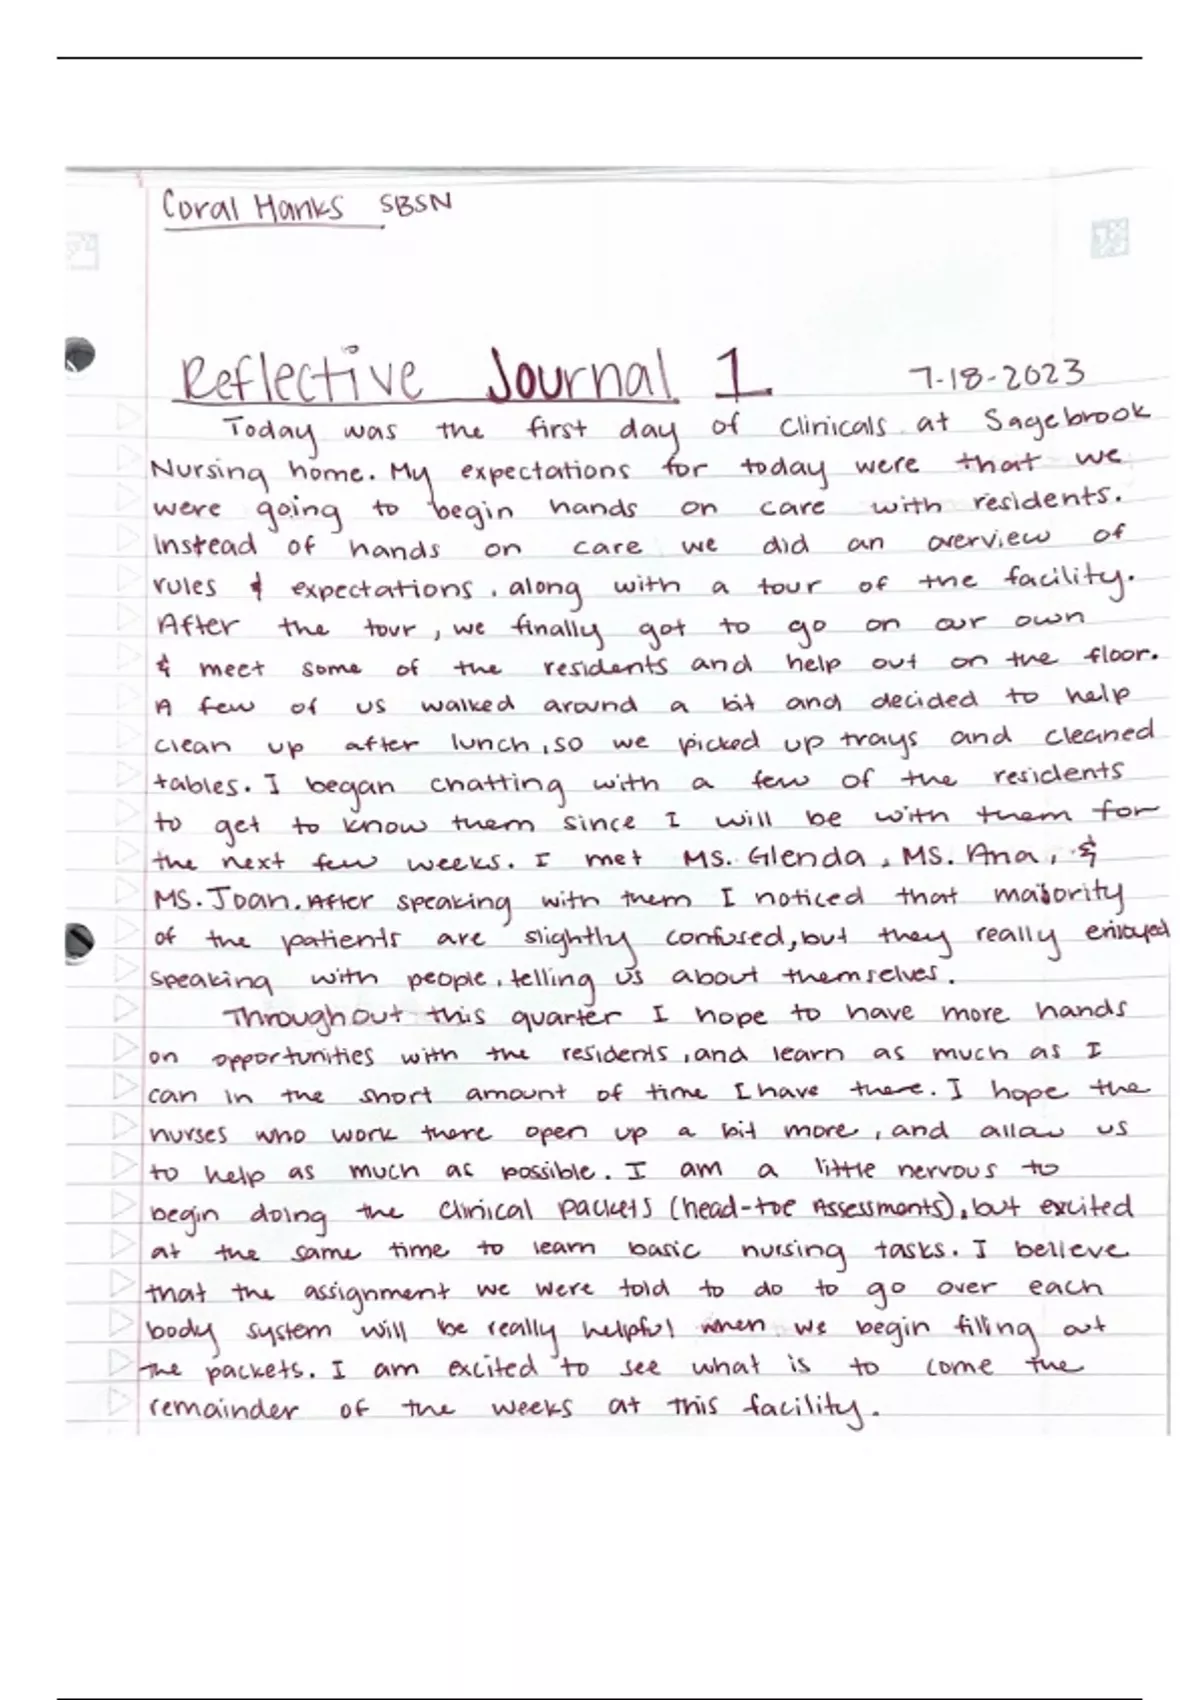 Coral Hanks SBSN
Reflective Journal 1 7-18-2023
Today was the first day of Clinicals at Sagebrook
Nursing home. My expectations for today were that we
were going to begin hands on care with residents.
Instead of hands on care we did an overview of
rules & expectations, along with a tour of the facility.
After the tour, we finally got to go on our own
& meet some of the residents and help out on the floor.
A few of us walked around a bit and decided to help
clean up after lunch, so we picked up trays and cleaned
tables. I began chatting with a few of the residents
to get to know them since I will be with them for
the next few weeks. I met MS. Glenda, MS. Ana, &
MS. Joan. After speaking with them I noticed that majority
of the patients are slightly confused, but they really enjoyed
speaking with people, telling us about themselves.
Throughout this quarter I hope to have more hands
on opportunities with the residents, and learn as much as I
can in the short amount of time I have there. I hope the
nurses who work there open up a bit more, and allow us
to help as much as possible. I am a little nervous to
begin doing the Clinical packets (head-toe Assessments), but excited
at the same time to learn basic nursing tasks. I believe
that the assignment we were told to do to go over each
body system will be really helpful when we begin filling out
the packets. I am excited to see what is to come the
remainder of the weeks at this facility.